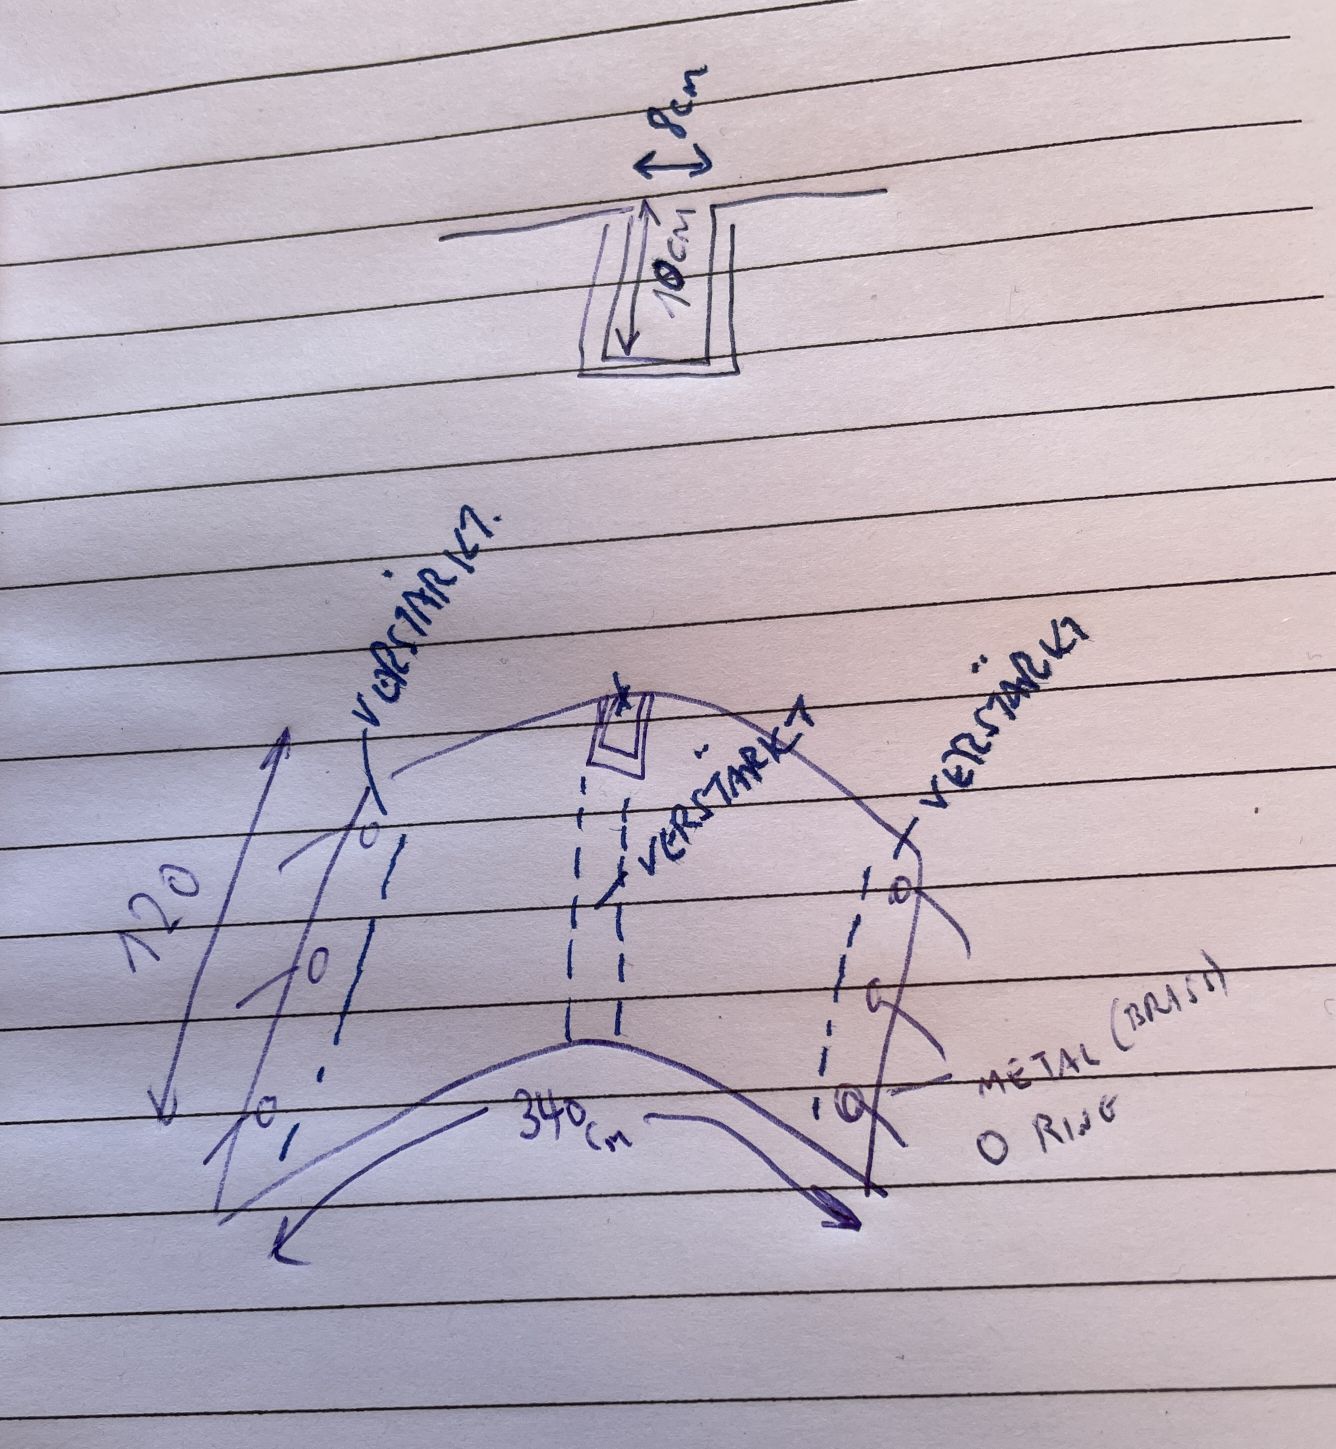 8cm
10cm
VERSTÄRKT.
VERSTÄRKT
VERSTÄRKT
120
340cm
METAL (BRASS)
O RING